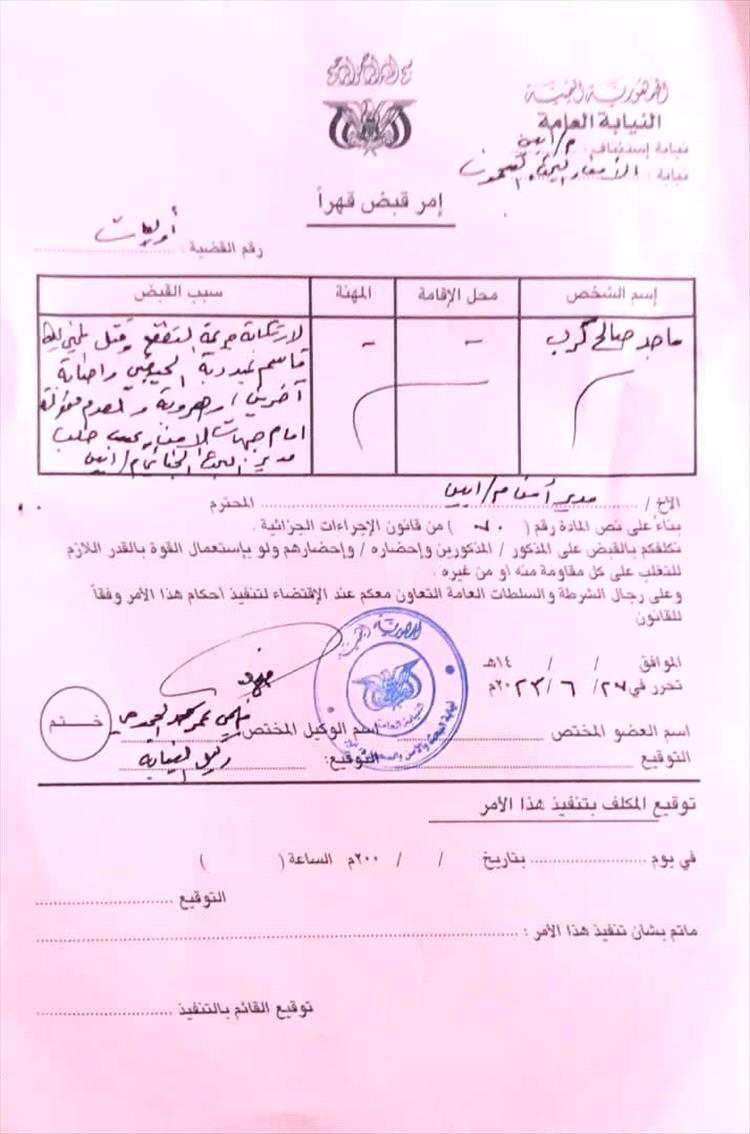 الجمهورية اليمنية
النيابة العامة
نيابة إستئناف : م/ابين
نيابة : الأمن والبحث والسجون
إمر قبض قهراً
رقم القضية : أوليات
إسم الشخص
محل الإقامة
المهنة
سبب القبض
ماجد صالح كرب
-
-
لارتكابه جريمة التقطع وقتل
قاسم
آخرين / وهروبه
امام جهات الامن حسب طلب
مدير البحث الجنائي م/ابين
الأخ / مدير أمن م/ابين المحترم
بناءً على نص المادة رقم ( ٧٠ ) من قانون الإجراءات الجزائية .
نكلفكم بالقبض على المذكور / المذكورين وإحضاره / وإحضارهم ولو بإستعمال القوة بالقدر اللازم
للتغلب على كل مقاومة منه او من غيره .
وعلى رجال الشرطة والسلطات العامة التعاون معكم عند الإقتضاء لتنفيذ احكام هذا الأمر وفقاً
للقانون
الجمهورية اليمنية
النيابة العامة
الموافق / / ١٤هـ
تحرر في ٢٧/ ٦ / ٢٠٢٣م
إسم العضو المختص
إسم الوكيل المختص
ختم
التوقيع
التوقيع: وكيل النيابة
توقيع المكلف بتنفيذ هذا الأمر
في يوم بتاريخ / / ٢٠٠م الساعة ( )
التوقيع
ماتم بشان تنفيذ هذا الأمر :
توقيع القائم بالتنفيذ